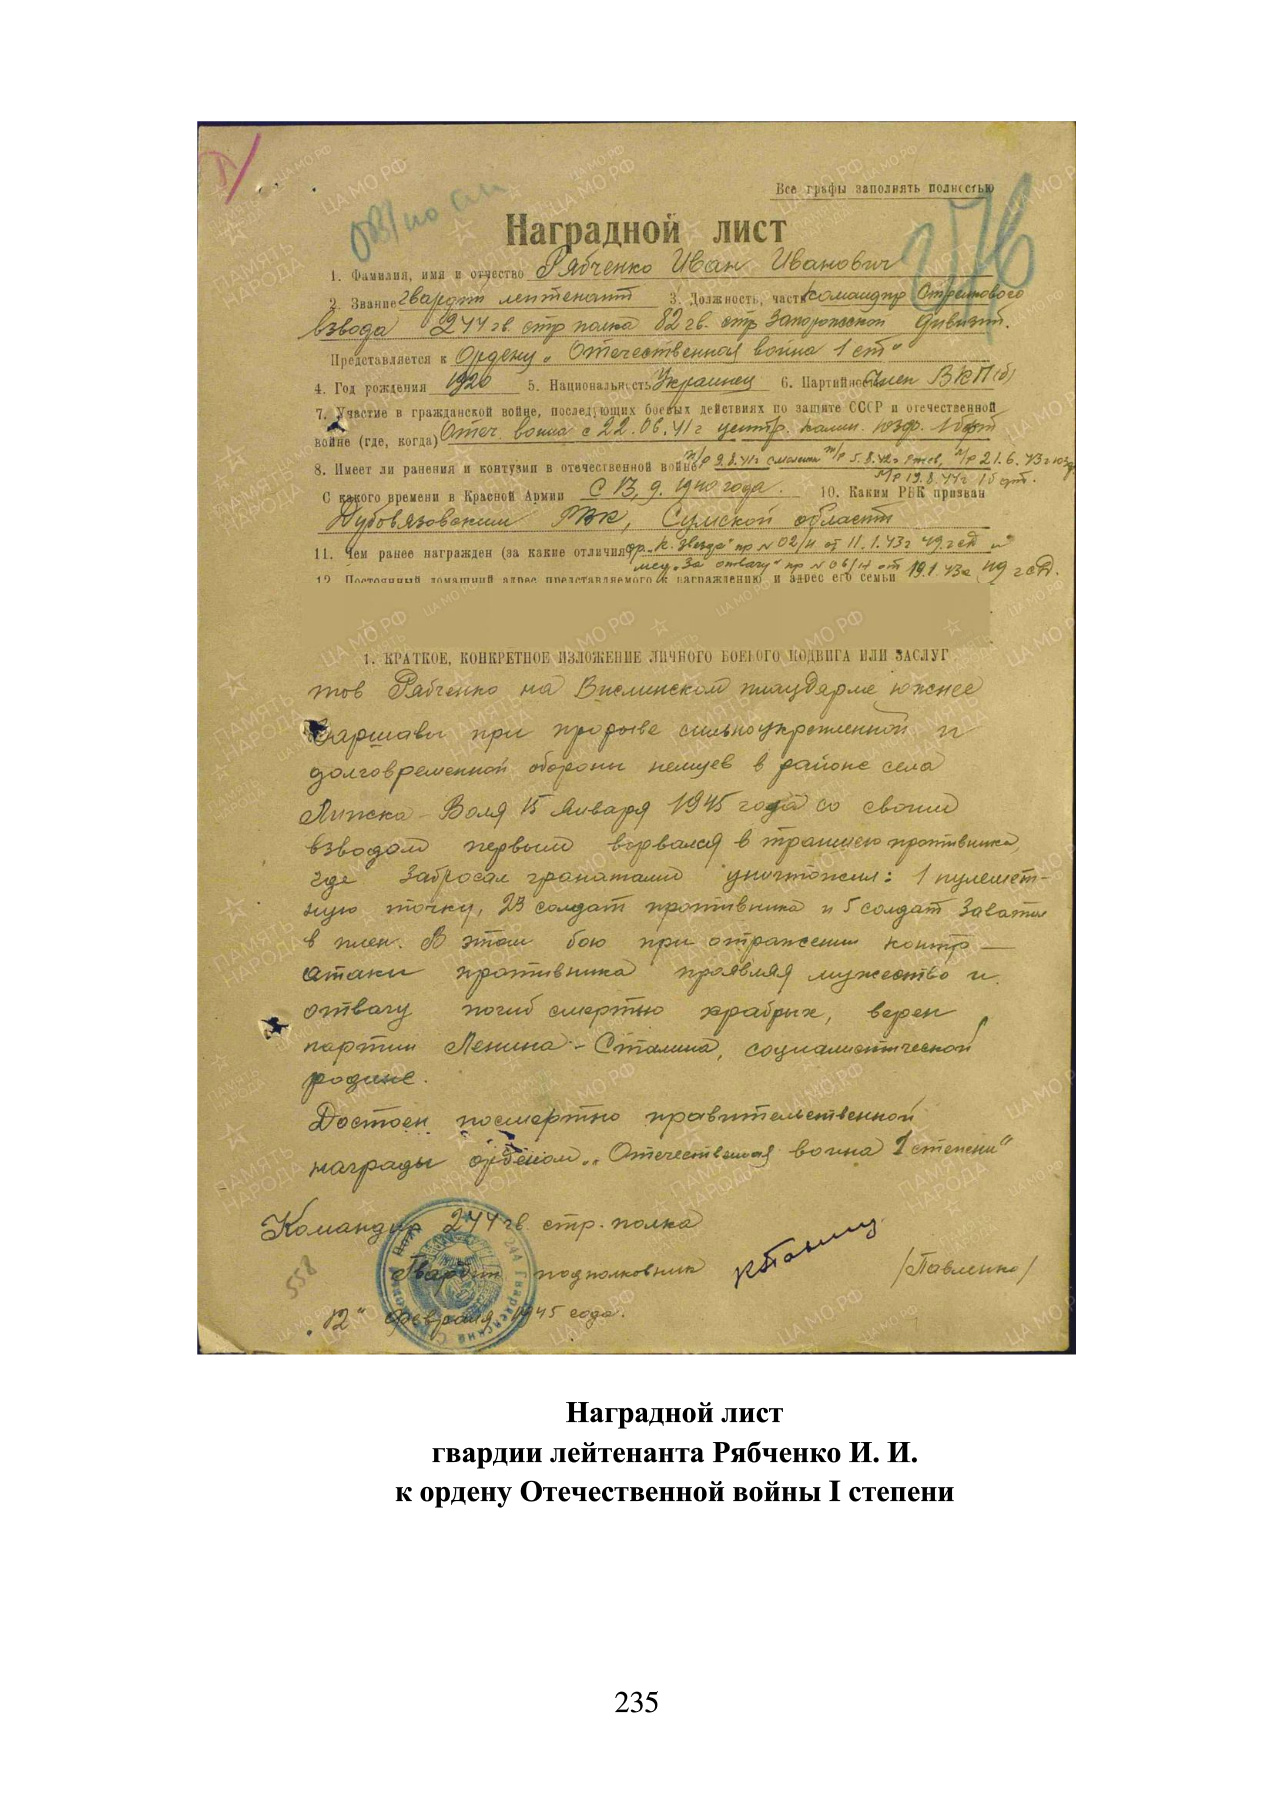 Все графы заполнять полностью
ОВ I по сп
Наградной лист
1. Фамилия, имя и отчество Рябченко Иван Иванович
2. Звание гвардии лейтенант 3. Должность, часть командир стрелкового
взвода 244 гв. стр полка 82 гв. стр Запорожской дивизии.
Представляется к Ордену „Отечественная война 1 ст"
4. Год рождения 1920 5. Национальность Украинец 6. Партийность Член ВКП(б)
7. Участие в гражданской войне, последующих боевых действиях по защите СССР и отечественной
войне (где, когда) Отеч. война с 22.06.41г центр. калин. Юзф. 1бфт
8. Имеет ли ранения и контузии в отечественной войне т/р 9.8.41г смоленск т/р 5.8.42г Ржев, л/р 21.6.43г юзф.
л/р 19.8.44г 1б фт.
С какого времени в Красной Армии С 13, 9. 1940 года. 10. Каким РВК призван
Дубовязовским РВК, Сумской области
11. Чем ранее награжден (за какие отличия) ор. „К. Звезда" пр № 02/н от 11.1.43г 49 гсд и
мед „За отвагу" пр № 06/н от 19.1.43г 49 гсд.
12. Постоянный домашний адрес представляемого к награждению и адрес его семьи
1. КРАТКОЕ, КОНКРЕТНОЕ ИЗЛОЖЕНИЕ ЛИЧНОГО БОЕВОГО ПОДВИГА ИЛИ ЗАСЛУГ
тов Рябченко на Вислинском плацдарме южнее
Варшавы при прорыве сильноукрепленной и
долговременной обороны немцев в районе села
Липска-Воля 15 января 1945 года со своим
взводом первым ворвался в траншею противника,
где забросал гранатами уничтожил: 1 пулемет-
ную точку, 23 солдат противника и 5 солдат захватил
в плен. В этом бою при отражении контр-
атаки противника проявляя мужество и
отвагу погиб смертью храбрых, верен
партии Ленина-Сталина, социалистической
родине.
Достоен посмертно правительственной
награды орденом „Отечественная война 1 степени"
Командир 244 гв. стр. полка
Гвардии подполковник /Павленко/
558
„12" февраля 1945 года.
Наградной лист
гвардии лейтенанта Рябченко И. И.
к ордену Отечественной войны I степени
235